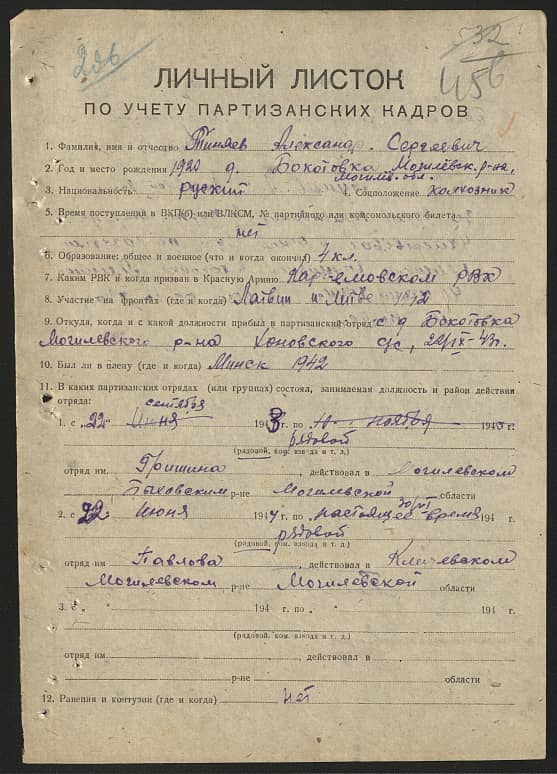 206
532
456
ЛИЧНЫЙ ЛИСТОК
ПО УЧЕТУ ПАРТИЗАНСКИХ КАДРОВ
1. Фамилия, имя и отчество Тиняев Александр Сергеевич
2. Год и место рождения 1920 д. Бокотовка Могилевск. р-на,
могилев. обл.
3. Национальность руский 4. Соцположение колхозник
5. Время поступления в ВКП(б) или ВЛКСМ, № партийного или комсомольского билета
нет
6. Образование: общее и военное (что и когда окончил) 7 кл.
7. Каким РВК и когда призван в Красную Армию РВК
8. Участие на фронтах (где и когда) Латвии и Литве
9. Откуда, когда и с какой должности прибыл в партизанский отряд с д. Бокотовка
Могилевского р-на Хоновского с/с, 22/IX-43г.
10. Был ли в плену (где и когда) Минск 1942
11. В каких партизанских отрядах (или группах) состоял, занимаемая должность и район действия
отряда:
сентября
1. с "22" Июня 1943 г. по ноября 1943 г.
рядовой
(рядовой, ком. взвода и т. д.)
отряд им. Гришина, действовал в Могилевском
Быховским р-не Могилевской области
2. с 22 июня 1944 г. по настоящее время 194 г.
рядовой
(рядовой, ком. взвода и т. д.)
отряд им. Павлова, действовал в Кличевском
Могилевском р-не Могилевской области
3. с 194 г. по 194 г.
(рядовой, ком. взвода и т. д.)
отряд им. действовал в
р-не области
12. Ранения и контузии (где и когда) нет